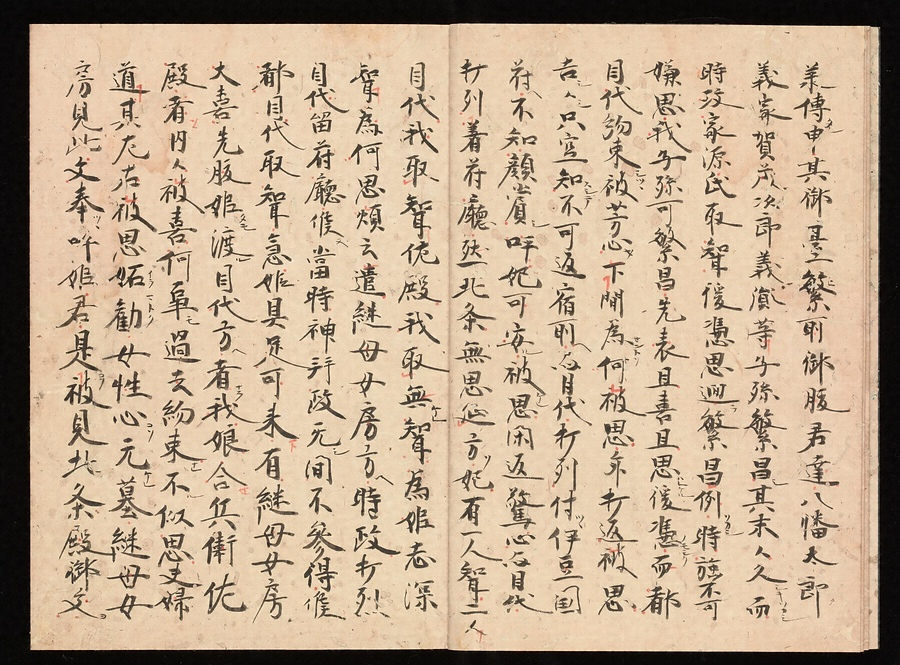 義傳申其御臺繁所御腹君達八幡太郎
義家賀茂次郎義濱等子孫繁昌其末人久而
時政家源氏取聟後憑思廻繁昌例時誰不可
嫌思我子孫可繁昌先表且喜且思後憑而都
目代約束被芳心下間為何被思乍打返被思
吉々只空知不可返宿所右目代打列付伊豆国
府不知顔濱呼妃可遊被思閑返驚心右目代
打列著府廳然北条無思延方妃有一人聟二人
目代我取聟佐殿我取無聟為姫志深
聟為何思煩云遣継母女房方時政打烈
目代留府廳候當時神拜政无間不参得候
都目代取聟急姫具足可来有継母女房
大喜先腹姫渡目代方者我娘合兵衛佐
殿者内々被喜何事過去約束不似思夫婦
道其左右被思妬勸女性心元墓継母女
房見此文奉呼姫君是被見北条殿御文